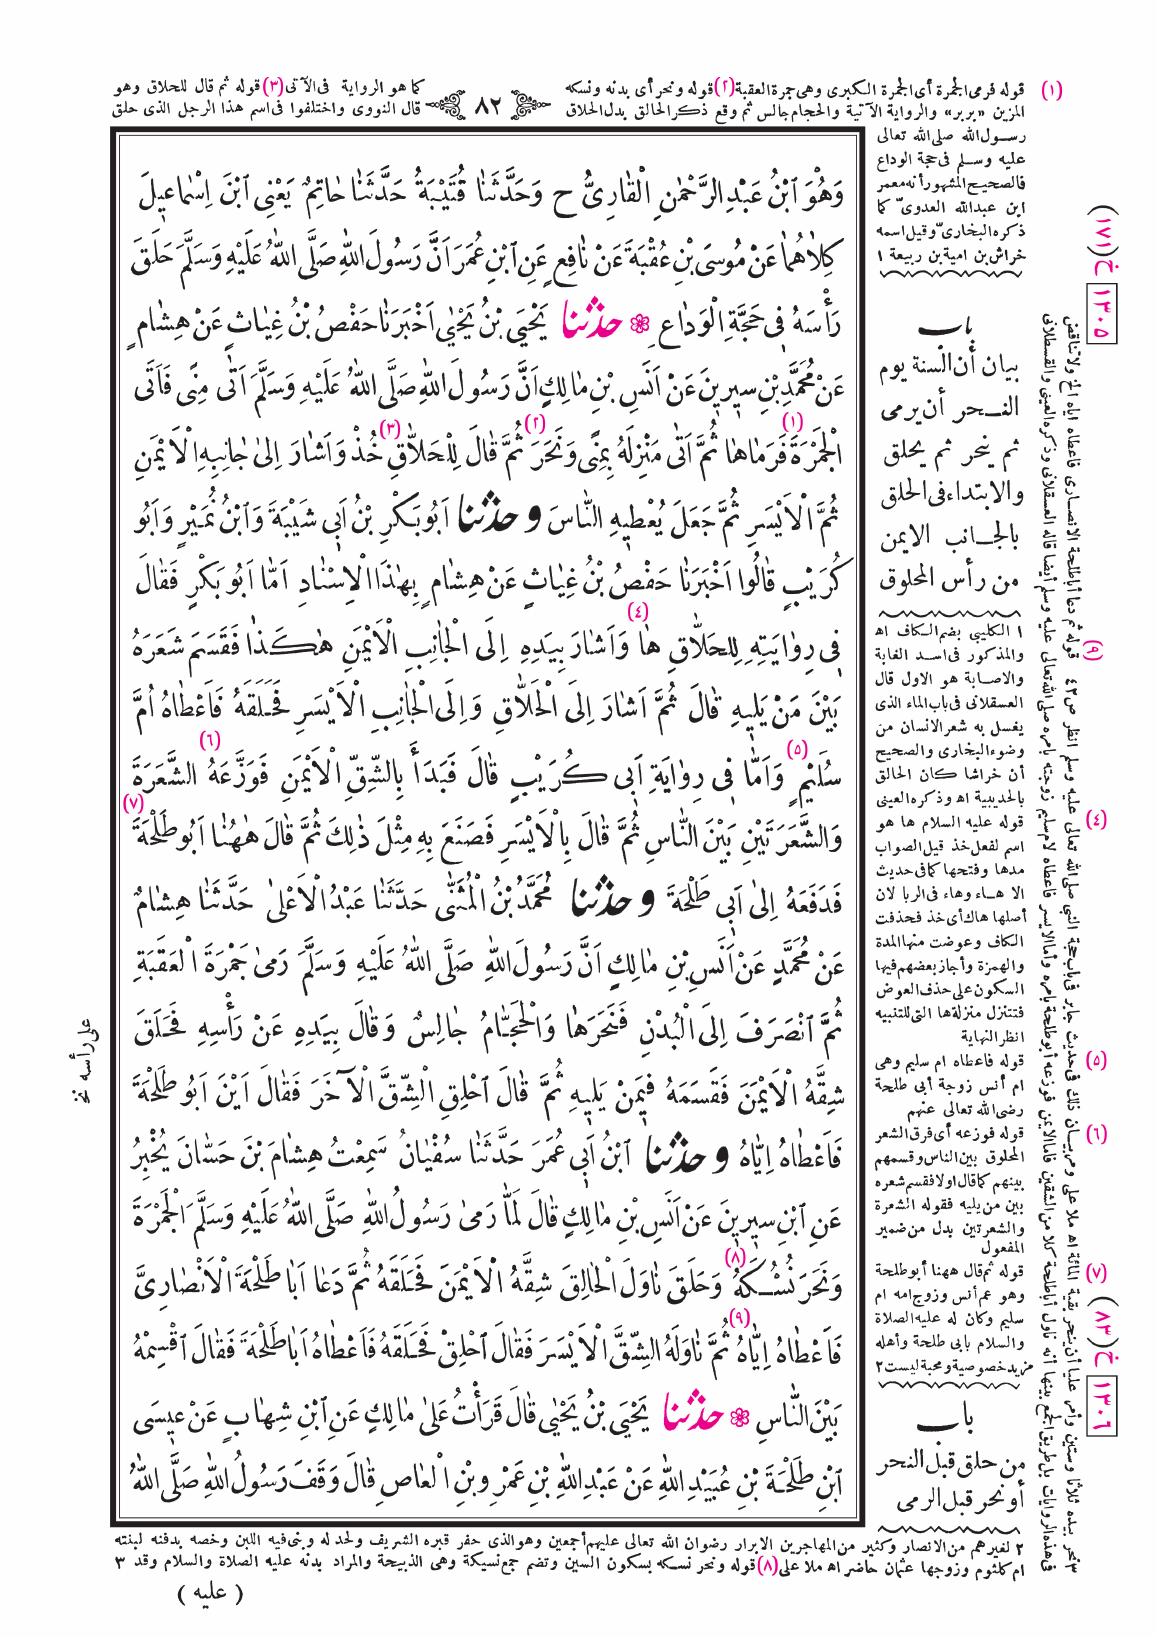 (١) قوله فرمى الجمرة أى الجمرة الكبرى وهى جمرة العقبة (٢) قوله ونحر أى بدنه ونسكه
كما هو الرواية فى الآتى (٣) قوله ثم قال للحلاق وهو
المزين «بربر» والرواية الآتية والحجام جالس ثم وقع ذكر الحالق بدل الحلاق
٨٢
قال النووى واختلفوا فى اسم هذا الرجل الذى حلق
رسول الله صلى الله تعالى
عليه وسلم فى حجة الوداع
فالصحيح المشهور أنه معمر
ابن عبدالله العدوىّ كما
ذكره البخارىّ وقيل اسمه
خراش بن امية بن ربيعة ١
وَهُوَ ٱبْنُ عَبْدِالرَّحْمٰنِ الْقَارِىُّ ح وَحَدَّثَنَا قُتَيْبَةُ حَدَّثَنَا حَاتِمٌ يَعْنِى ٱبْنَ اِسْمَاعِيلَ
كِلَاهُمَا عَنْ مُوسَى بْنِ عُقْبَةَ عَنْ نَافِعٍ عَنِ ٱبْنِ عُمَرَ اَنَّ رَسُولَ اللهِ صَلَّى اللهُ عَلَيْهِ وَسَلَّمَ حَلَقَ
رَأْسَهُ فِى حَجَّةِ الْوَدَاعِ ❁ حَدَّثَنَا يَحْيَى بْنُ يَحْيٰى اَخْبَرَنَا حَفْصُ بْنُ غِيَاثٍ عَنْ هِشَامٍ
عَنْ مُحَمَّدِ بْنِ سِيرِينَ عَنْ اَنَسِ بْنِ مَالِكٍ اَنَّ رَسُولَ اللهِ صَلَّى اللهُ عَلَيْهِ وَسَلَّمَ اَتٰى مِنًى فَاَتَى
الْجَمْرَةَ (١) فَرَمَاهَا ثُمَّ اَتٰى مَنْزِلَهُ بِمِنًى وَنَحَرَ (٢) ثُمَّ قَالَ لِلْحَلَّاقِ (٣) خُذْ وَاَشَارَ اِلىٰ جَانِبِهِ الْاَيْمَنِ
ثُمَّ الْاَيْسَرِ ثُمَّ جَعَلَ يُعْطِيهِ النَّاسَ و حَدَّثَنَا اَبُو بَكْرِ بْنُ اَبِى شَيْبَةَ وَٱبْنُ نُمَيْرٍ وَاَبُو
كُرَيْبٍ قَالُوا اَخْبَرَنَا حَفْصُ بْنُ غِيَاثٍ عَنْ هِشَامٍ بِهٰذَا الْاِسْنَادِ اَمَّا اَبُو بَكْرٍ فَقَالَ
فِى رِوَايَتِهِ لِلحَلَّاقِ هَا (٤) وَاَشَارَ بِيَدِهِ اِلَى الْجَانِبِ الْاَيْمَنِ هٰكَذَا فَقَسَمَ شَعَرَهُ
بَيْنَ مَنْ يَلِيهِ قَالَ ثُمَّ اَشَارَ اِلَى الْحَلَّاقِ وَاِلَى الْجَانِبِ الْاَيْسَرِ فَحَلَقَهُ فَاَعْطَاهُ اُمَّ
سُلَيْمٍ (٥) وَاَمَّا فِى رِوَايَةِ اَبِى كُرَيْبٍ قَالَ فَبَدَأَ بِالشِّقِّ الْاَيْمَنِ فَوَزَّعَهُ (٦) الشَّعَرَةَ
وَالشَّعَرَتَيْنِ بَيْنَ النَّاسِ ثُمَّ قَالَ بِالْاَيْسَرِ فَصَنَعَ بِهِ مِثْلَ ذٰلِكَ ثُمَّ قَالَ هٰهُنَا اَبُو طَلْحَةَ (٧)
فَدَفَعَهُ اِلىٰ اَبِى طَلْحَةَ و حَدَّثَنَا مُحَمَّدُ بْنُ الْمُثَنّٰى حَدَّثَنَا عَبْدُ الْاَعْلىٰ حَدَّثَنَا هِشَامٌ
عَنْ مُحَمَّدٍ عَنْ اَنَسِ بْنِ مَالِكٍ اَنَّ رَسُولَ اللهِ صَلَّى اللهُ عَلَيْهِ وَسَلَّمَ رَمىٰ جَمْرَةَ الْعَقَبَةِ
ثُمَّ ٱنْصَرَفَ اِلَى الْبُدْنِ فَنَحَرَهَا وَالْحَجَّامُ جَالِسٌ وَقَالَ بِيَدِهِ عَنْ رَأْسِهِ فَحَلَقَ
شِقَّهُ الْاَيْمَنَ فَقَسَمَهُ فِيمَنْ يَلِيهِ ثُمَّ قَالَ ٱحْلِقِ الشِّقَّ الْآخَرَ فَقَالَ اَيْنَ اَبُو طَلْحَةَ
فَاَعْطَاهُ اِيَّاهُ و حَدَّثَنَا ٱبْنُ اَبِى عُمَرَ حَدَّثَنَا سُفْيَانُ سَمِعْتُ هِشَامَ بْنَ حَسَّانَ يُخْبِرُ
عَنِ ٱبْنِ سِيرِينَ عَنْ اَنَسِ بْنِ مَالِكٍ قَالَ لَمَّا رَمىٰ رَسُولُ اللهِ صَلَّى اللهُ عَلَيْهِ وَسَلَّمَ الْجَمْرَةَ
وَنَحَرَ نُسُكَهُ (٨) وَحَلَقَ نَاوَلَ الْحَالِقَ شِقَّهُ الْاَيْمَنَ فَحَلَقَهُ ثُمَّ دَعَا اَبَا طَلْحَةَ الْاَنْصَارِىَّ
فَاَعْطَاهُ اِيَّاهُ ثُمَّ نَاوَلَهُ (٩) الشِّقَّ الْاَيْسَرَ فَقَالَ ٱحْلِقْ فَحَلَقَهُ فَاَعْطَاهُ اَبَا طَلْحَةَ فَقَالَ ٱقْسِمْهُ
بَيْنَ النَّاسِ ❁ حَدَّثَنَا يَحْيَى بْنُ يَحْيٰى قَالَ قَرَأْتُ عَلىٰ مَالِكٍ عَنِ ٱبْنِ شِهَابٍ عَنْ عِيسَى
ٱبْنِ طَلْحَةَ بْنِ عُبَيْدِ اللهِ عَنْ عَبْدِ اللهِ بْنِ عَمْرِو بْنِ الْعَاصِ قَالَ وَقَفَ رَسُولُ اللهِ صَلَّى اللهُ
على رأسه نخ
(١٧١) خ ١٣٠٥
باب
بيان أن السنة يوم
النحر أن يرمى
ثم ينحر ثم يحلق
والابتداء فى الحلق
بالجانب الايمن
من رأس المحلوق
١ الكليبى بضم الكاف اه
والمذكور فى اسد الغابة
والاصابة هو الاول قال
العسقلانى فى باب الماء الذى
يغسل به شعر الانسان من
وضوء البخارى والصحيح
أن خراشا كان الحالق
بالحديبية اه وذكره العينى
(٤) قوله عليه السلام ها هو
اسم لفعل خذ قيل الصواب
مدها وفتحها كما فى حديث
الا هاء وهاء فى الربا لان
أصلها هاك أى خذ فحذفت
الكاف وعوضت منها المدة
والهمزة وأجاز بعضهم فيها
السكون على حذف العوض
فتتنزل منزلة ها التى للتنبيه
انظر النهاية
(٥) قوله فاعطاه ام سليم وهى
ام أنس زوجة أبى طلحة
رضى الله تعالى عنهم
(٦) قوله فوزعه أى فرق الشعر
المحلوق بين الناس وقسمهم
بينهم كما قال اولا فقسم شعره
بين من يليه فقوله الشعرة
والشعرتين بدل من ضمير
المفعول
(٧) قوله ثم قال ههنا أبو طلحة
وهو عم أنس وزوج امه ام
سليم وكان له عليه الصلاة
والسلام بابى طلحة وأهله
مزيد خصوصية ومحبة ليست ٢
(٨٣) خ ١٣٠٦
باب
من حلق قبل النحر
أو نحر قبل الرمى
(٩) قوله ثم دعا أباطلحة الانصارى فاعطاه اياه الخ ولا تناقض
فى هذه الروايات بل طريق الجمع بينها أنه ناول أباطلحة كلا من الشقين فاما الايمن فوزعه أبو طلحة بامره وأما الايسر فاعطاه لام سليم زوجته بامره صلى الله تعالى عليه وسلم أيضا قاله العسقلانى وذكره العينى والقسطلانى
٣ نحر بيده ثلاثا وستين وأمر عليا أن ينحر بقية المائة اه ملا على ومر بيان ذلك فى حديث جابر فى باب حجة النبى صلى الله تعالى عليه وسلم انظر ص ٤٢
٢ لغيرهم من الانصار وكثير من المهاجرين الابرار رضوان الله تعالى عليهم أجمعين وهو الذى حفر قبره الشريف ولحد له وبنى فيه اللبن وخصه بدفنه لبنته
ام كلثوم وزوجها عثمان حاضر اه ملا على (٨) قوله ونحر نسكه بسكون السين وتضم جمع نسيكة وهى الذبيحة والمراد بدنه عليه الصلاة والسلام وقد ٣
( عليه )